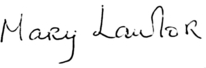 Mary Lawlor